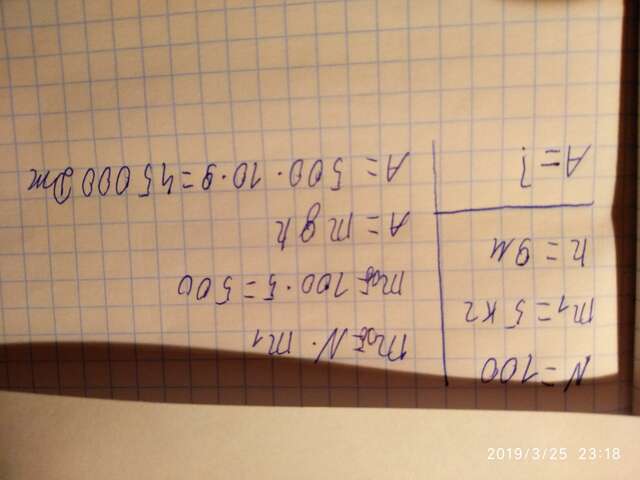 N=100
m₁=5 кг
h=9м
A=?
mоб=N·m₁
mоб=100·5=500
A=mgh
A=500·10·9=45000Дж
2019/3/25 23:18